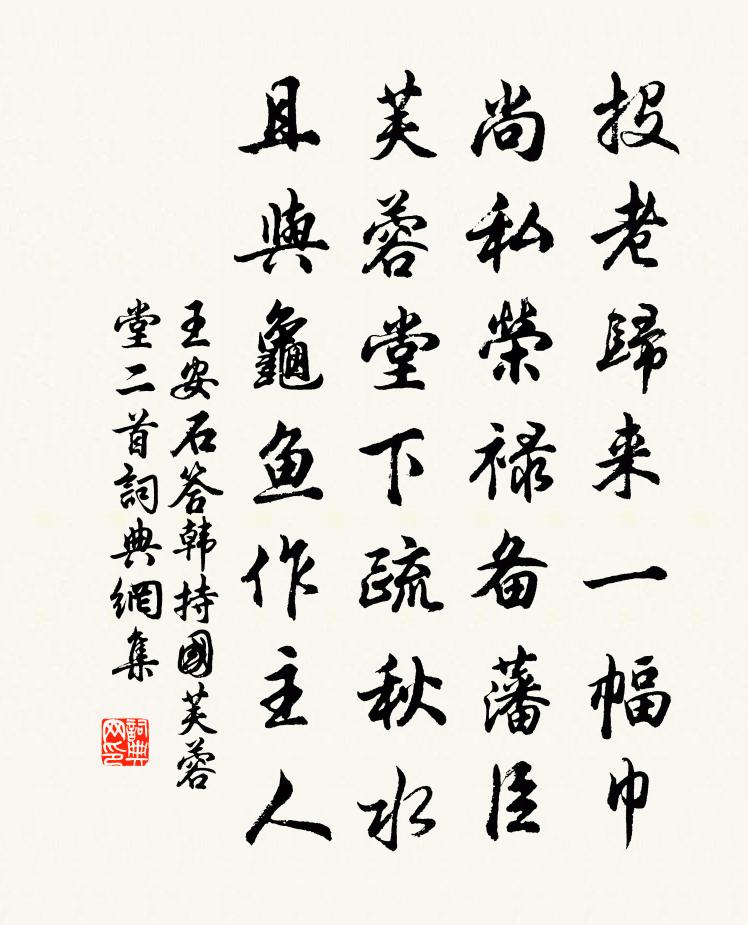 投老歸来一幅巾
尚私榮禄备藩臣
芙蓉堂下疏秋水
且與龜鱼作主人
王安石答韩持國芙蓉
堂二首詞典網集
詞典网印